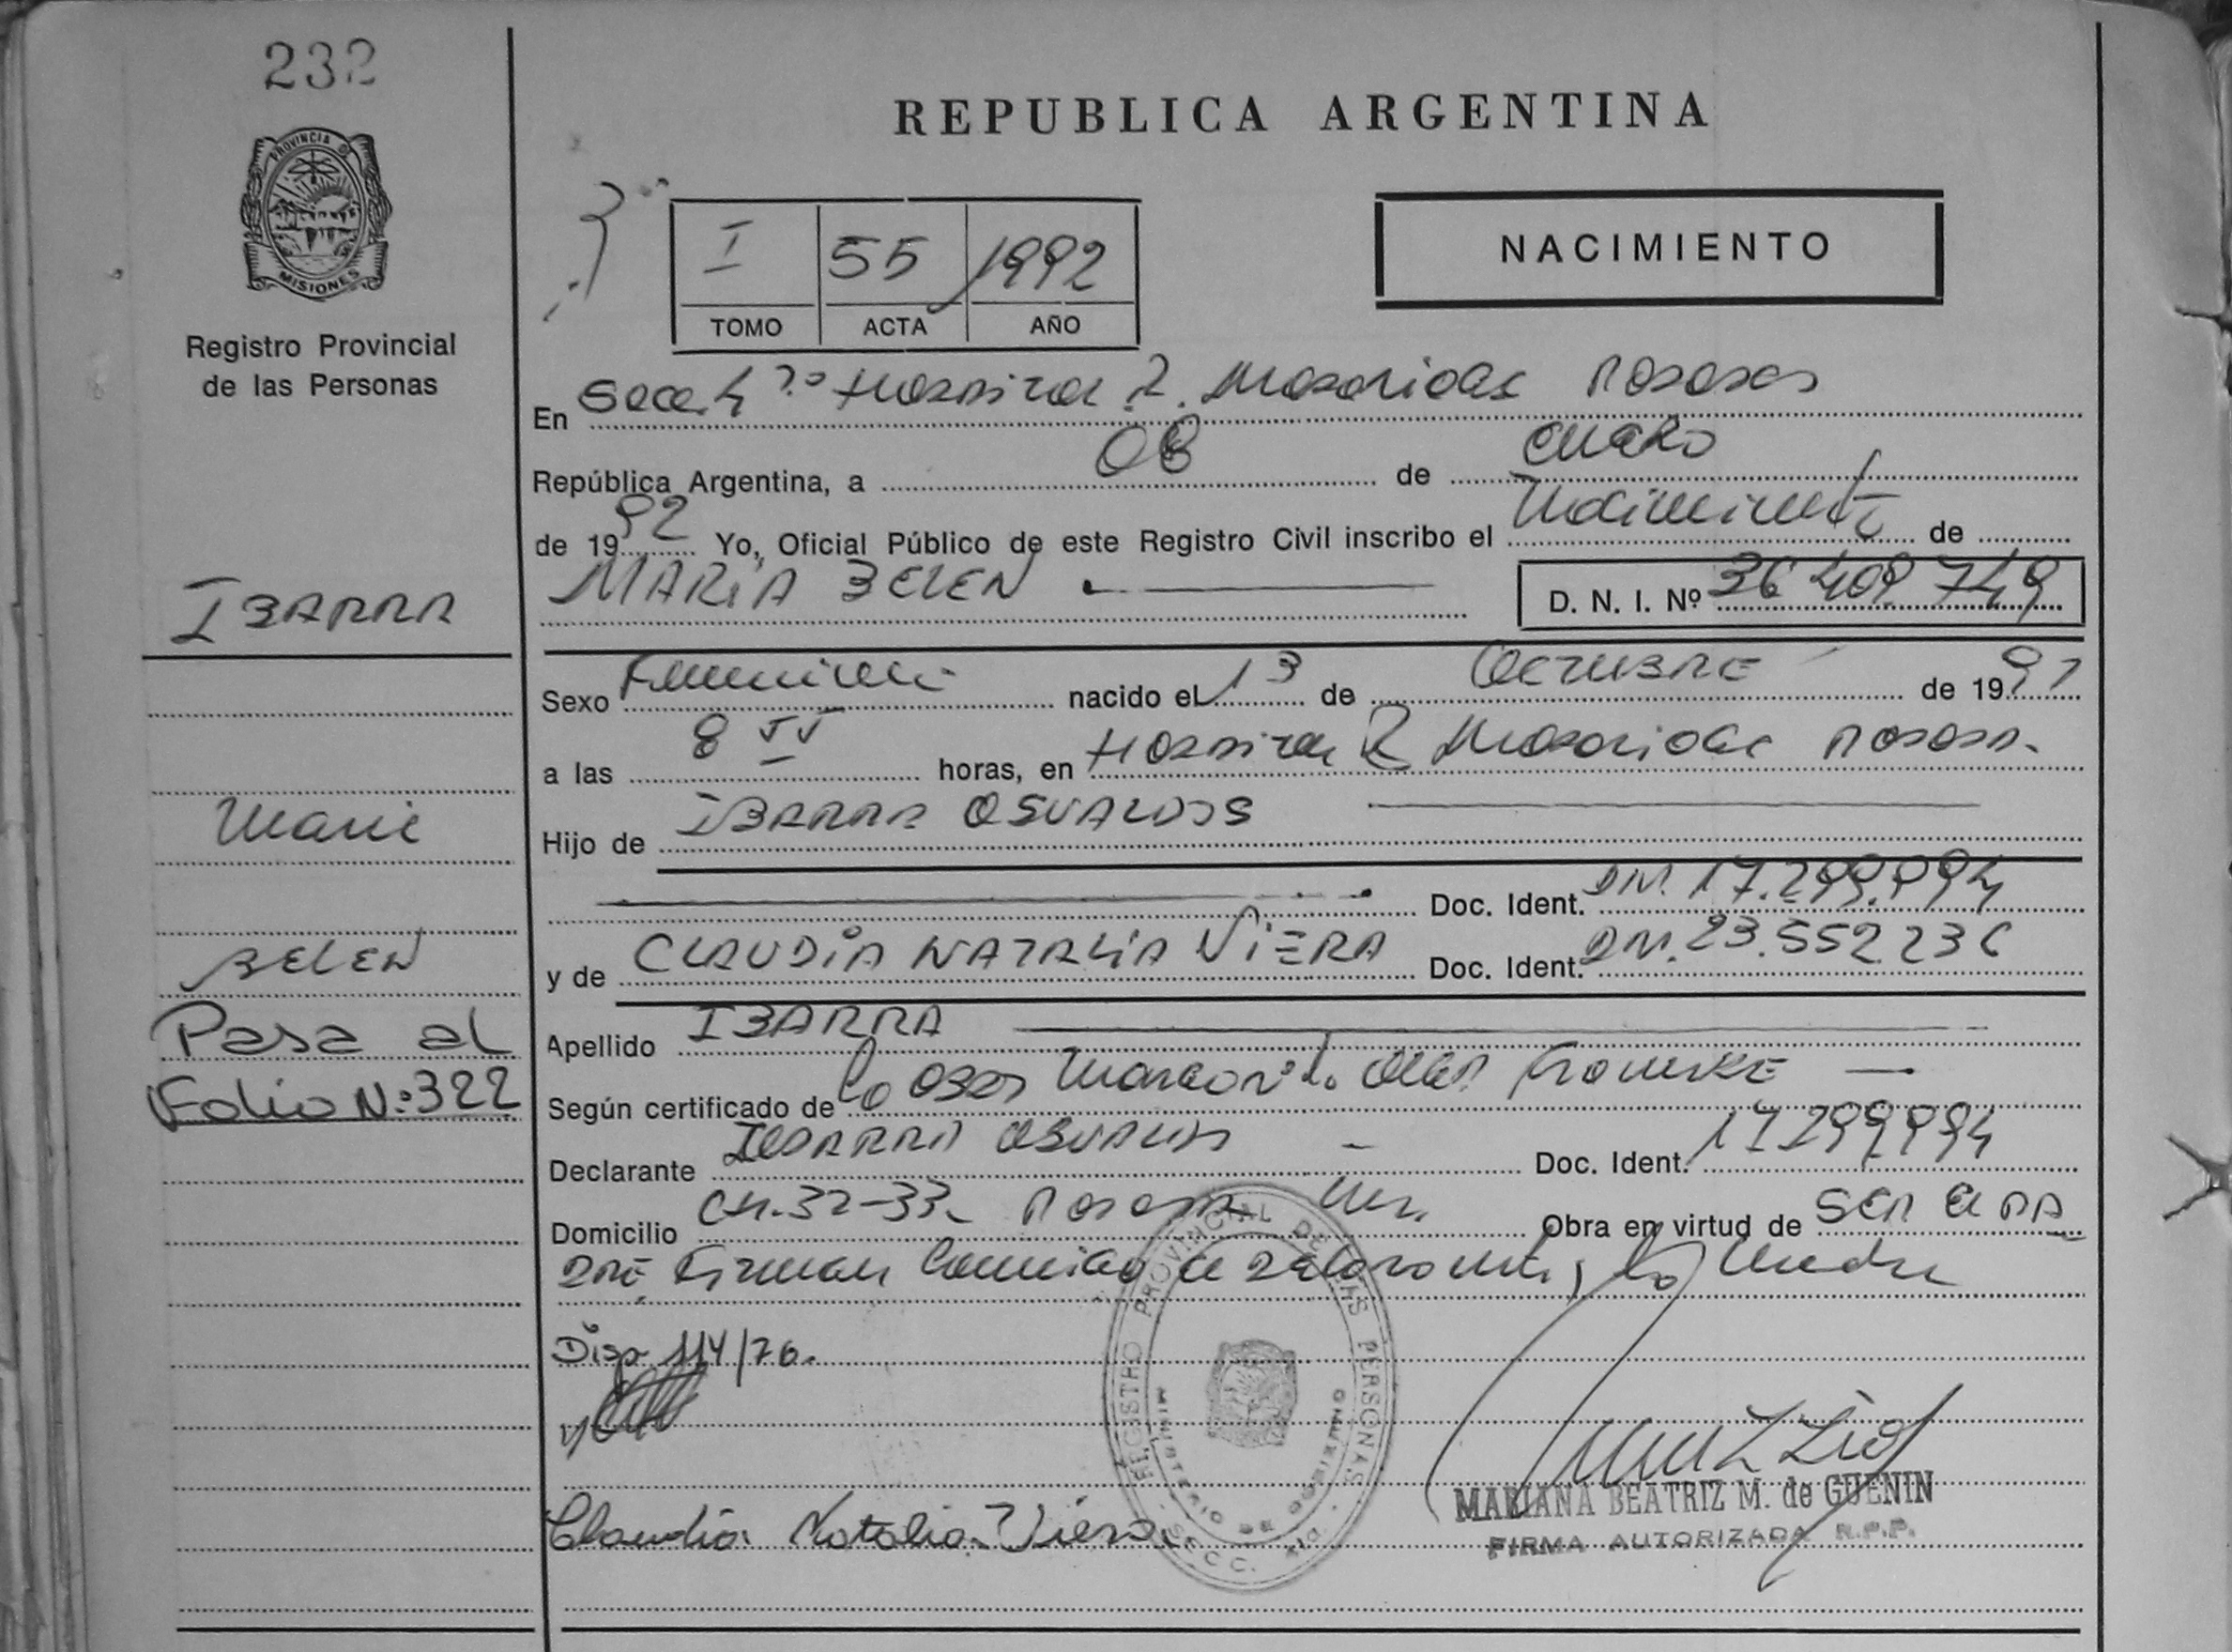 232
PROVINCIA D
MISIONES
Registro Provincial
de las Personas
REPUBLICA ARGENTINA
I 55 1992
TOMO ACTA AÑO
NACIMIENTO
En Secc. Hospital R. Madariaga Posadas
República Argentina, a 08 de enero
de 1992 Yo, Oficial Público de este Registro Civil inscribo el nacimiento de
MARIA BELEN
D. N. I. Nº 36 409 749
IBARRA
Sexo Femenino nacido el 13 de OCTUBRE de 1991
a las 8 horas, en Hospital R Madariaga Posadas
Maria
Hijo de IBARRA OSVALDO
Doc. Ident. DNI. 17.299.994
BELEN
y de CLAUDIA NATALIA VIERA Doc. Ident. DNI. 23.552.236
Pasa al
Folio Nº 322
Apellido IBARRA
Según certificado de
Declarante IBARRA OSVALDO Doc. Ident. 17299994
Domicilio CH. 32-33 Posadas Mnes. Obra en virtud de SER EL PA
DRE Firman conmigo el declarante y la Madre
Disp 114/76.
REGISTRO PROVINCIAL DE LAS PERSONAS
MINISTERIO DE GOBIERNO
SECC.
Claudia Natalia Viera
MARIANA BEATRIZ M. de GUENIN
FIRMA AUTORIZADA R.P.P.